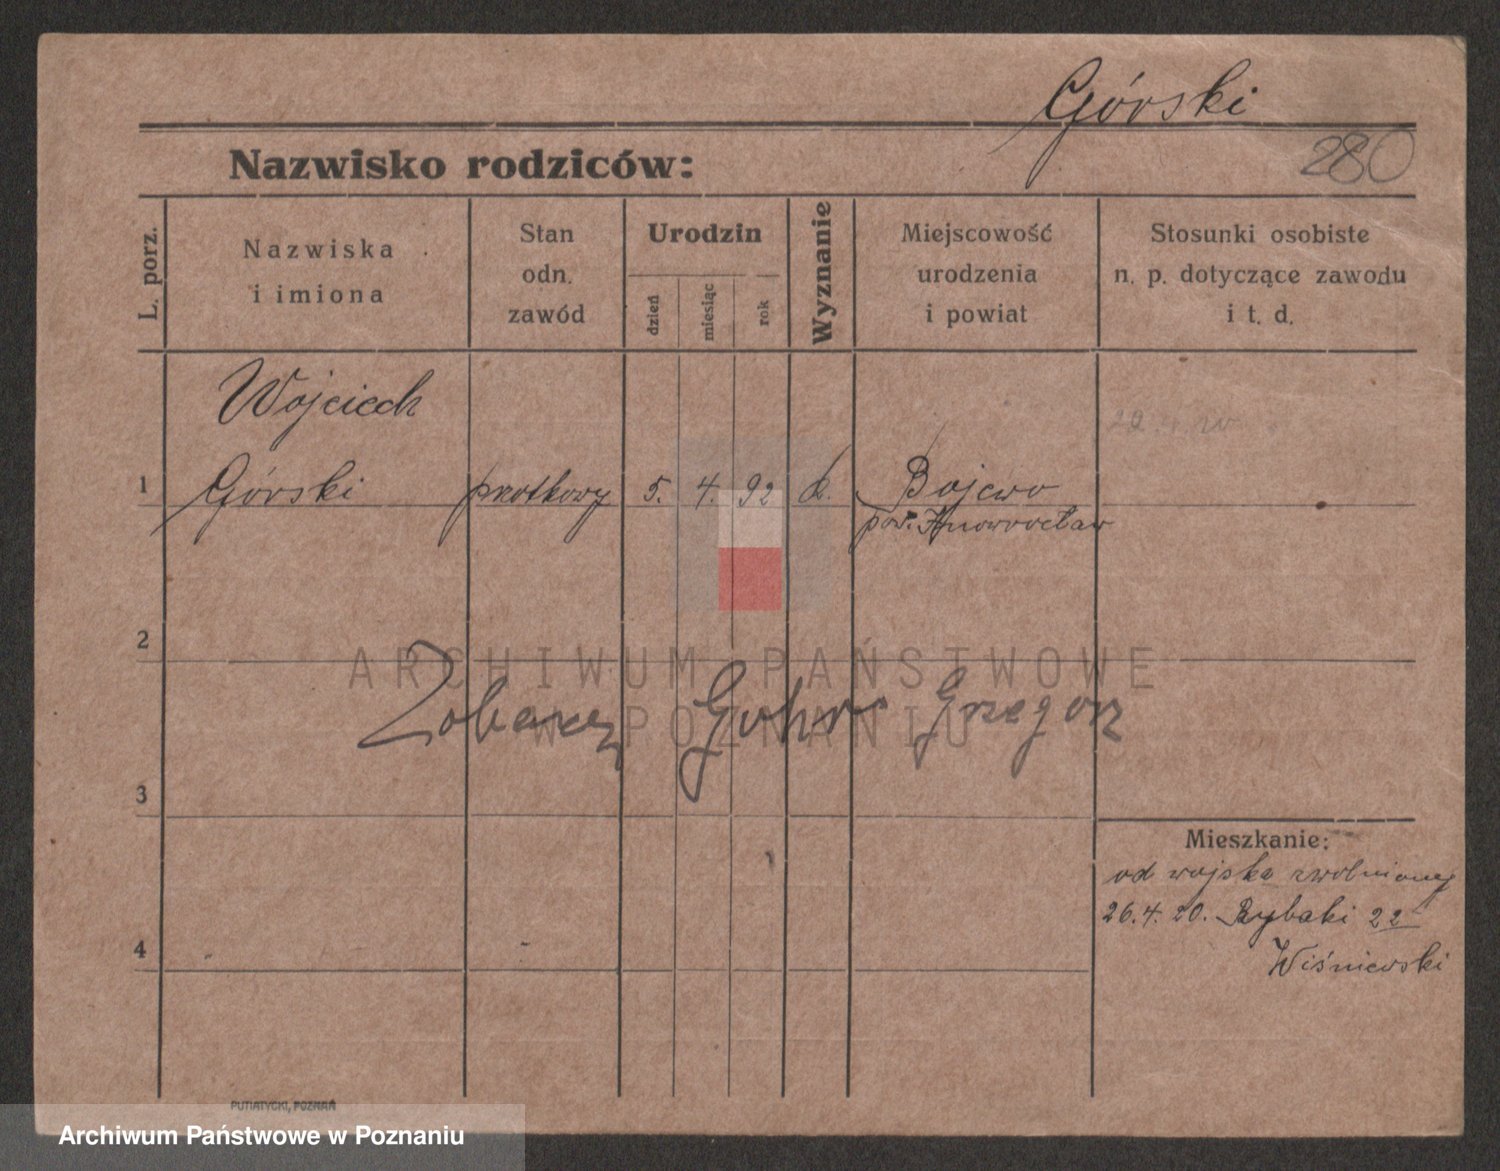 Górski
280
Nazwisko rodziców:
L. porz.
Nazwiska
i imiona
Stan
odn.
zawód
Urodzin
dzień
miesiąc
rok
Wyznanie
Miejscowość
urodzenia
i powiat
Stosunki osobiste
n. p. dotyczące zawodu
i t. d.
Wojciech
1 Górski 5. 4. 92 k. Bojewo
pow. Inowrocław
2
ARCHIWUM PAŃSTWOWE
W POZNANIU
Zobacz Grzegorz
3
Mieszkanie:
od wojska zwolniony
26.4.20. Rybaki 22
Wiśniewski
4
PUTIATYCKI, POZNAŃ
Archiwum Państwowe w Poznaniu